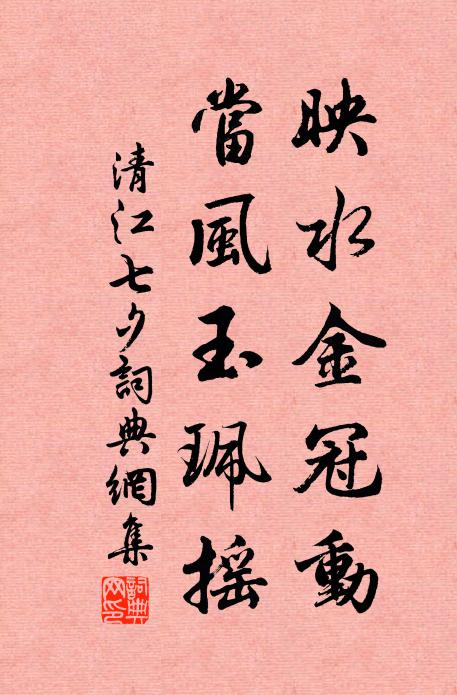 映水金冠動
當風玉珮摇
清江七夕詞典網集
詞典網印